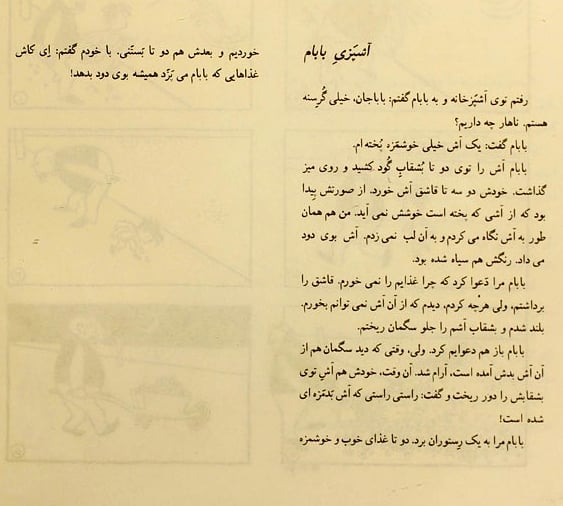 آشپَزیِ بابام
رفتم توی آشپَزخانه و به بابام گفتم: باباجان، خیلی گُرِسنه
هستم. ناهار چه داریم؟
بابام گفت: یک آش خیلی خوشمَزه پُخته‌ام.
بابام آش را توی دو تا بُشقابِ گُود کشید و روی میز
گذاشت. خودش دو سه تا قاشق آش خورد. از صورتش پِیدا
بود که از آشی که پخته است خوشش نمی آید. من هم همان
طور به آش نگاه می کردم و به آن لب نمی زدم. آش بوی دود
می داد. رنگش هم سیاه شده بود.
بابام مرا دَعوا کرد که چرا غذایم را نمی خورم. قاشق را
برداشتم، ولی هرْچه کردم، دیدم که از آن آش نمی توانم بخورم.
بلند شدم و بشقاب آشم را جلو سگمان ریختم.
بابام باز هم دعوایم کرد. ولی، وقتی که دید سگمان هم از
آن آش بدش آمده است، آرام شد. آن وقت، خودش هم آشِ توی
بشقابش را دور ریخت و گفت: راستی راستی که آش بَدمَزه ای
شده است!
بابام مرا به یک رِستوران برد. دو تا غذای خوب و خوشمزه
خوردیم و بعدش هم دو تا بَستَنی. با خودم گفتم: اِی کاش
غذاهایی که بابام می پَزَد همیشه بوی دود بدهد!